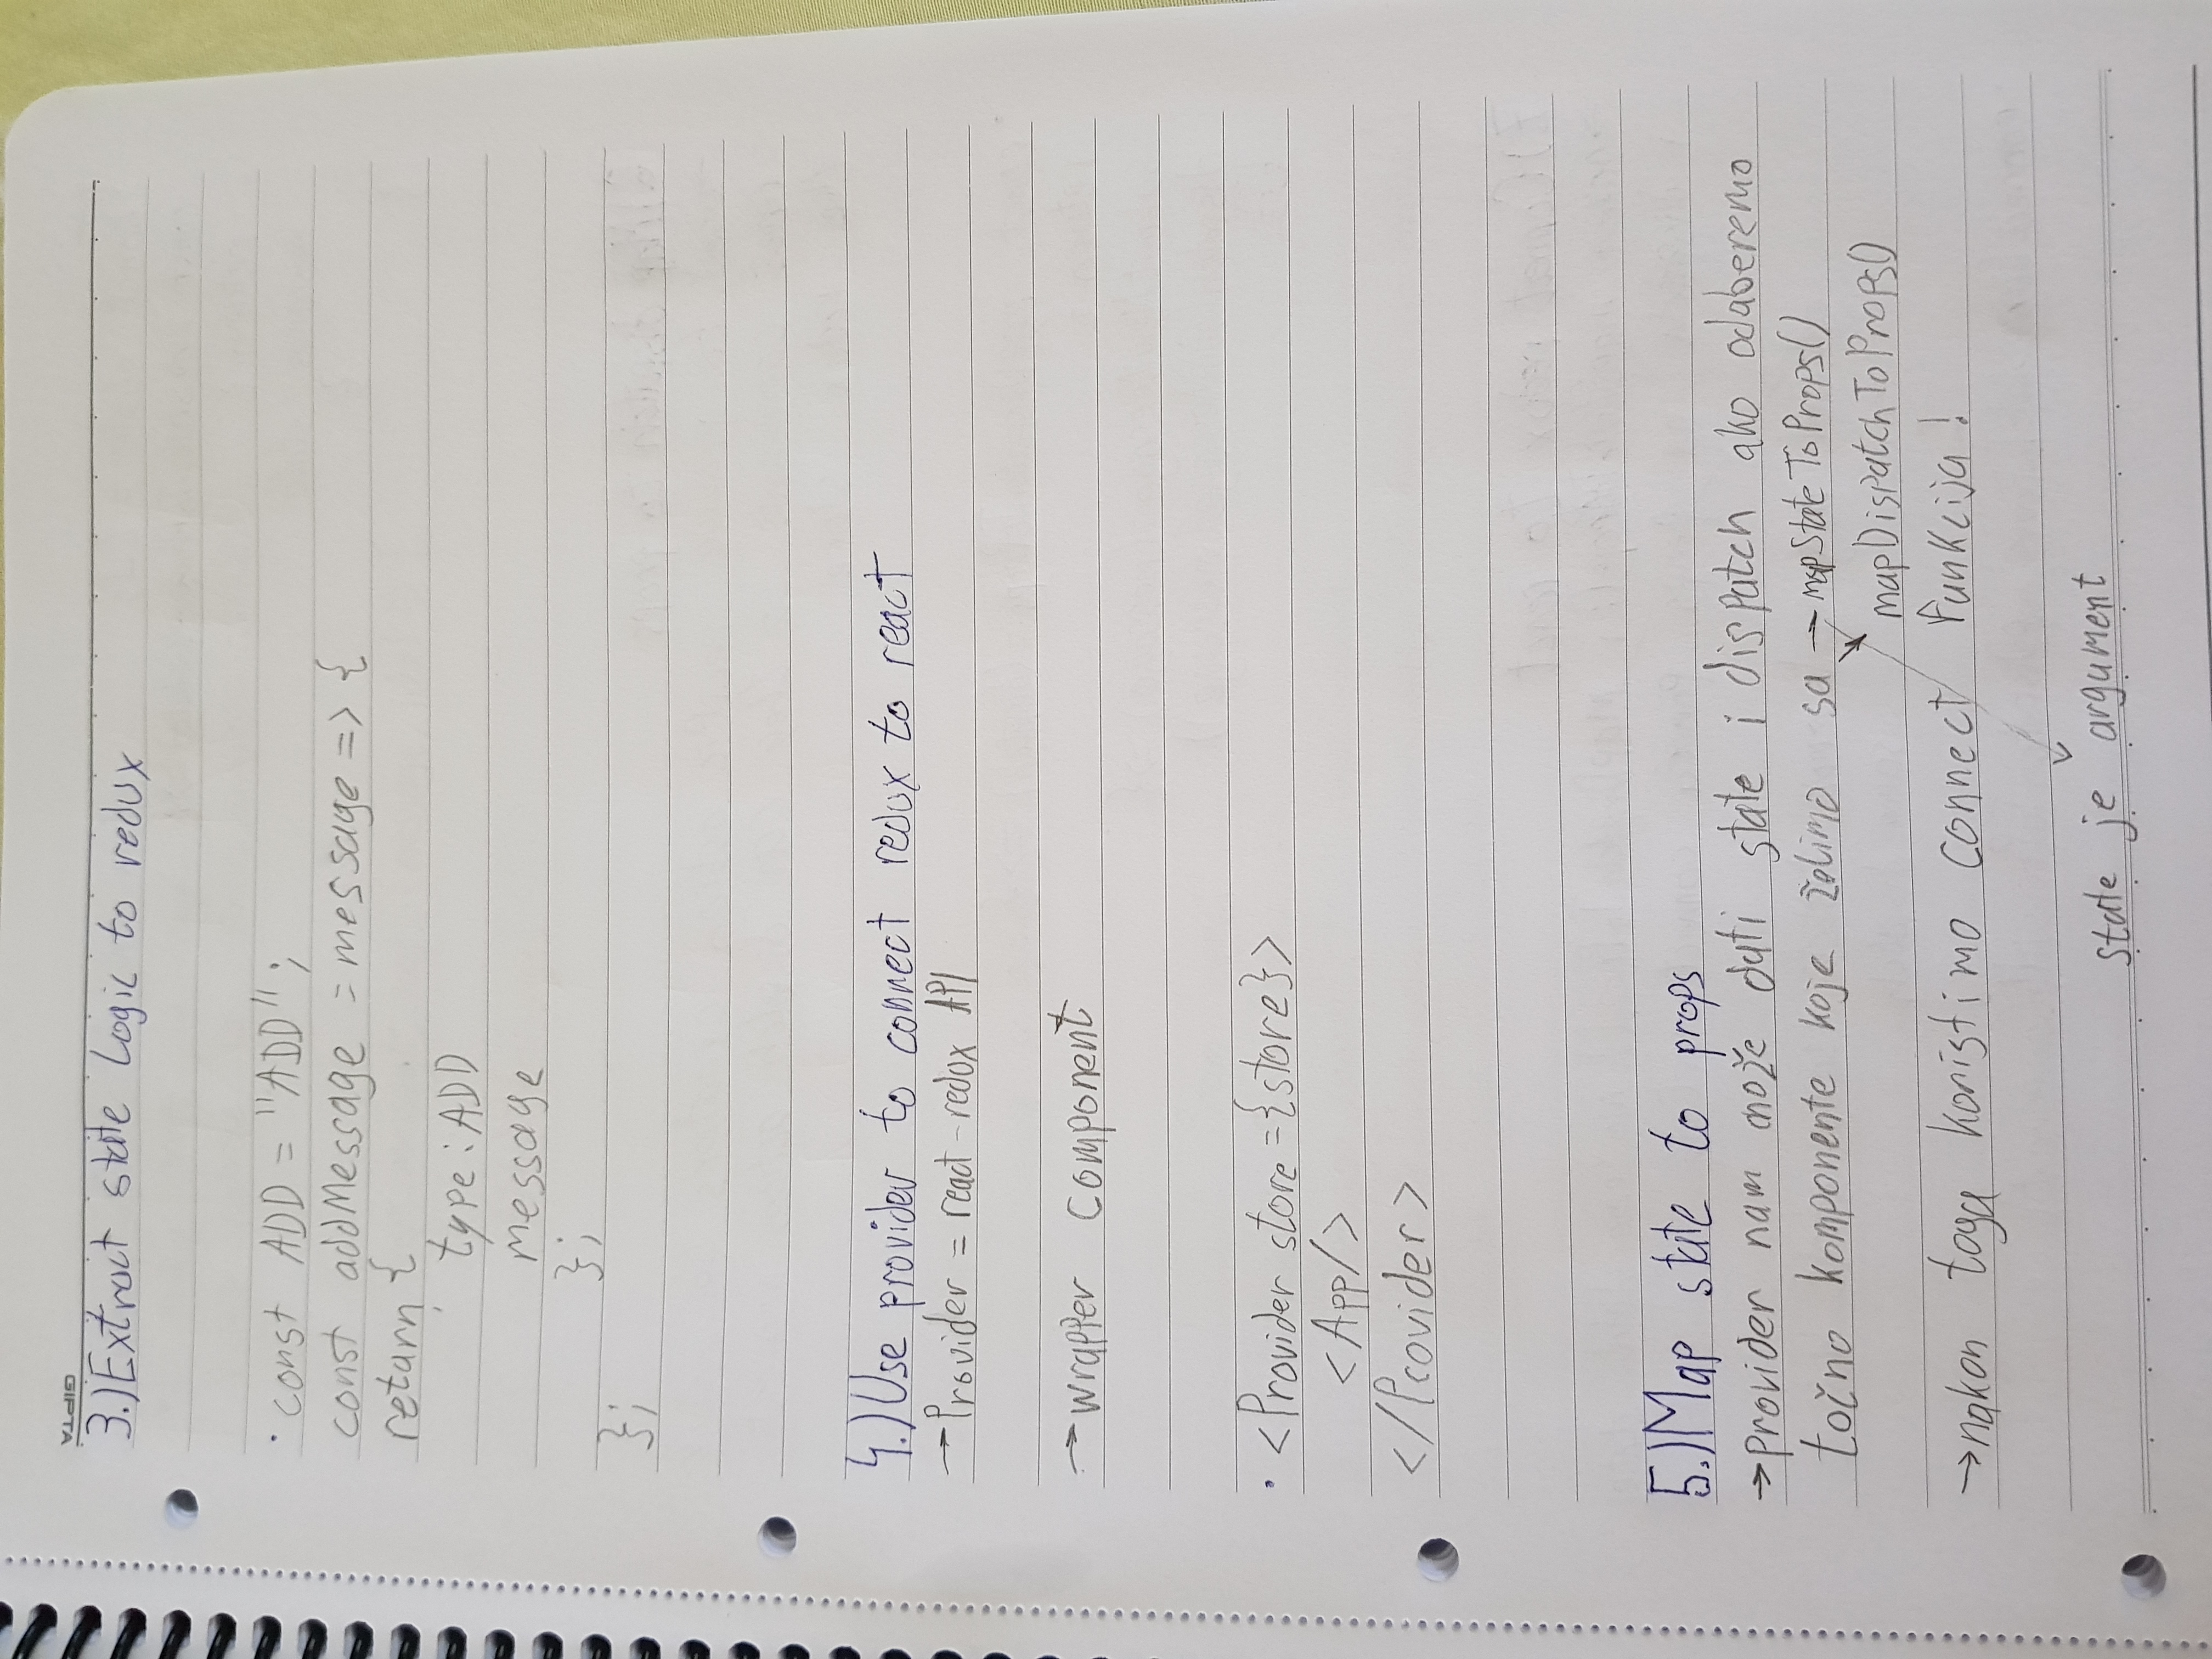 GIPTA
3.) Extract state logic to redux
· const ADD = "ADD";
const addMessage = message => {
return {
type: ADD
message
};
};
4.) Use provider to connect redux to react
→ Provider = react-redux API
→ wrapper component
· <Provider store={store}>
<App/>
</Provider>
5.) Map state to props
→ provider nam može dati state i dispatch ako odaberemo
točno komponente koje želimo sa → mapStateToProps()
mapDispatchToProps()
→ nakon toga koristimo connect funkcija!
state je argument